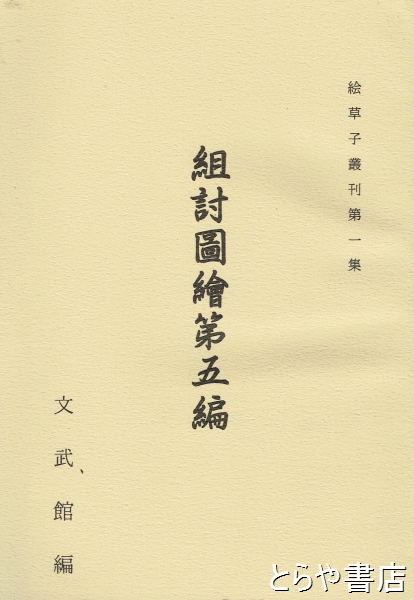 絵草子叢刊第一集
組討圖繪第五編
文武館編
とらや書店